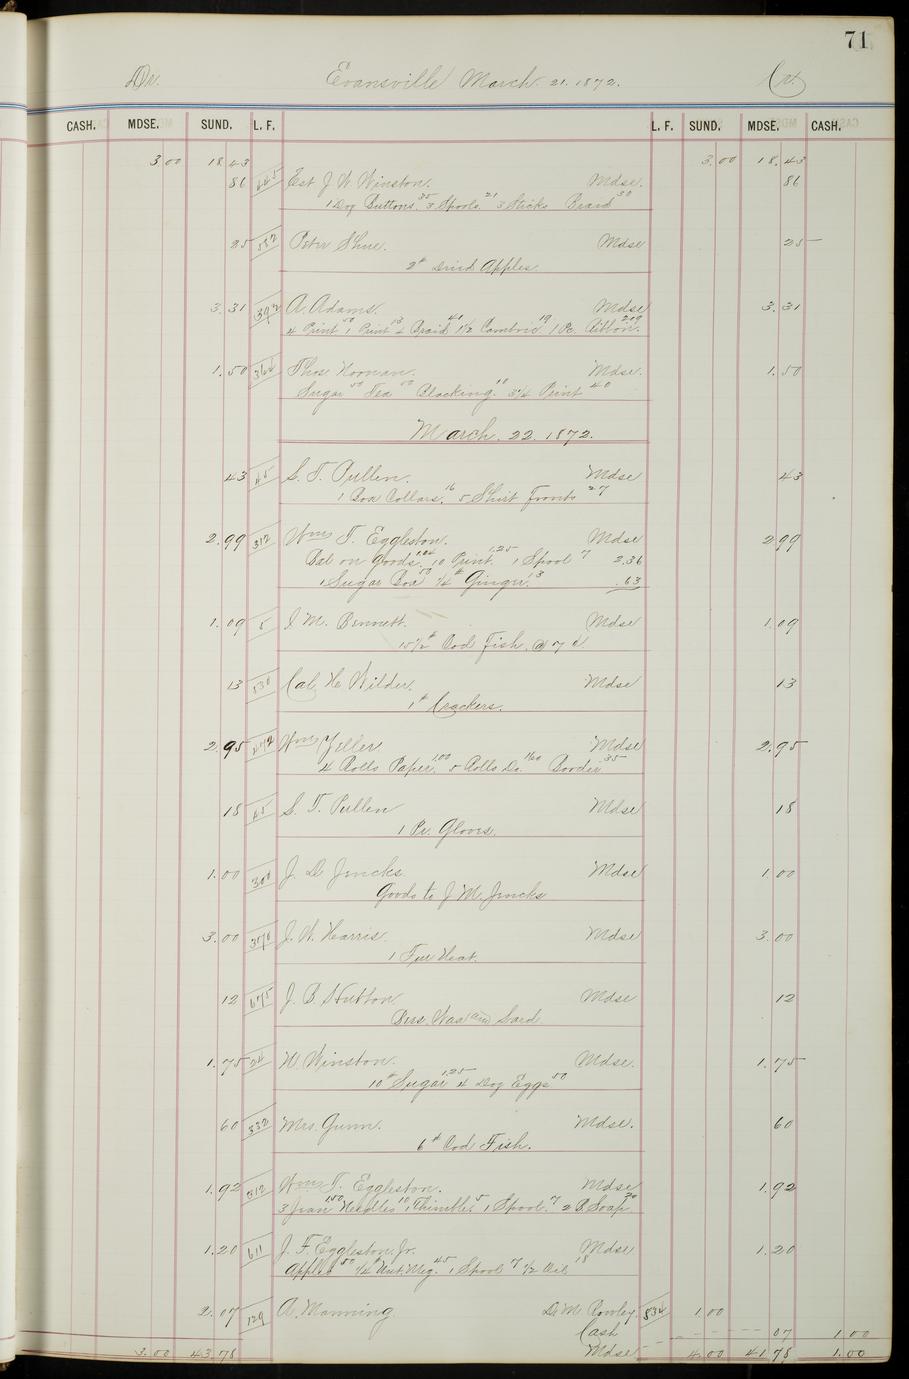 71
Dr. Evansville March. 21. 1872. Cr.
CASH. MDSE. SUND. L. F. L. F. SUND. MDSE. CASH.
3.00 18.43 3.00 18.43
86 Est J. W. Winston. Mdse. 86
1 Doz Buttons. 35 3 Spools. 21 3 Sticks Braid 30
25 582 Peter Shue. Mdse 25
2# Dried Apples.
3.31 392 A. Adams. Mdse 3.31
4 Print 50 1 Print 13 4 Braid 40 1 1/2 Cambric 19 1 Pc. Ribbon. 209
1.50 366 Thos Noonan. Mdse. 1.50
Sugar 50 Tea 50 Blacking. 10 3 1/4 Print 40
March. 22. 1872.
43 45 S. T. Pullen. Mdse 43
1 Box Collars. 16 5 Shirt Fronts 27
2.99 312 Wm T. Eggleston. Mdse 2.99
Bal on Goods. 1.04 10 Print. 1.25 1 Spool 7 2.36
1 Sugar Box 50 1/4# Ginger. 13 .63
1.09 5 I. M. Bennett. Mdse 1.09
15 1/2# Cod Fish. @ 7 c
13 530 Cal. H. Wilder. Mdse 13
1# Crackers.
2.95 472 Wm Yeller. Mdse 2.95
4 Rolls Paper. 1.00 5 Rolls Do. 1.60 Border 35
18 45 S. T. Pullen Mdse 18
1 Pr. Gloves.
1.00 300 J. D. Jencks. Mdse 1.00
Goods to J. M. Jencks
3.00 J. W. Harris. Mdse 3.00
1 Fur Heat.
12 675 J. B. Hutton. Mdse 12
Bees Wax and Lard
1.75 24 W. Winston. Mdse. 1.75
10# Sugar 1.25 4 Doz Eggs 50
60 532 Mrs. Gunn. Mdse. 60
6# Cod Fish.
1.92 312 Wm T. Eggleston. Mdse 1.92
3 Jean 1.50 Needles 10 1 Thimble. 5 1 Spool. 7 2 B. Soap. 20
1.20 611 J. F. Eggleston. Jr. Mdse 1.20
Apples 50 1/4# Nut. Meg. 45 1 Spool 7 1/2 Oil 18
2.07 129 A. Manning D. M. Rowley. 834 1.00
Cash 07 1.00
3.00 43.78 Mdse 4.00 41.78 1.00